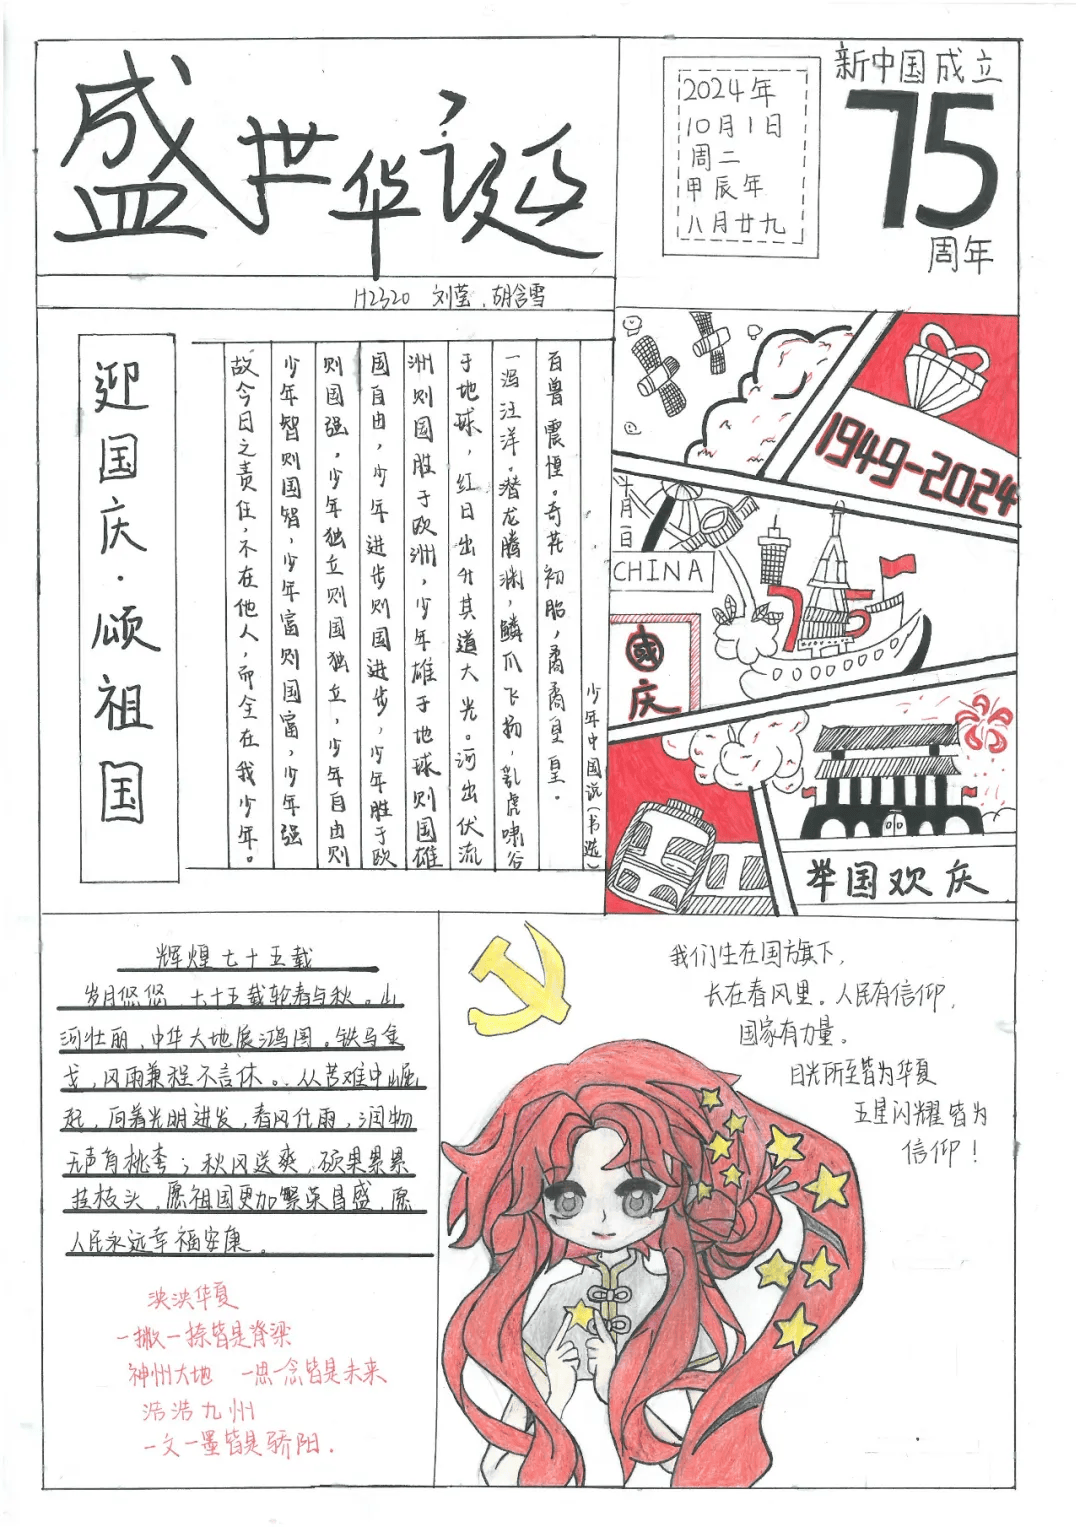 盛世华诞
2024年
10月1日
周二
甲辰年
八月廿九
新中国成立
75
周年
H2320 刘莹、胡含雪
迎国庆·颂祖国
少年中国说（节选）
故今日之责任，不在他人，而全在我少年。
少年智则国智，少年富则国富，少年强
则国强。少年独立则国独立，少年自由则
国自由，少年进步则国进步，少年胜于欧
洲则国胜于欧洲，少年雄于地球则国雄
于地球，红日出升其道大光。河出伏流
一泻汪洋。潜龙腾渊，鳞爪飞扬，乳虎啸谷
百兽震惶。奇花初胎，矞矞皇皇。
1949-2024
十月一日
CHINA
國庆
75
举国欢庆
辉煌七十五载
岁月悠悠、七十五载轮春与秋。山
河壮丽，中华大地展鸿图。铁马金
戈，风雨兼程不言休。从苦难中崛
起，向着光明进发，春风化雨，润物
无声育桃李；秋风送爽，硕果累累
挂枝头，愿祖国更加繁荣昌盛，愿
人民永远幸福安康。
泱泱华夏
一撇一捺皆是脊梁
神州大地 一思一念皆是未来
浩浩九州
一文一墨皆是骄阳.
我们生在国旗下，
长在春风里。人民有信仰，
国家有力量。
目光所至皆为华夏
五星闪耀皆为
信仰！